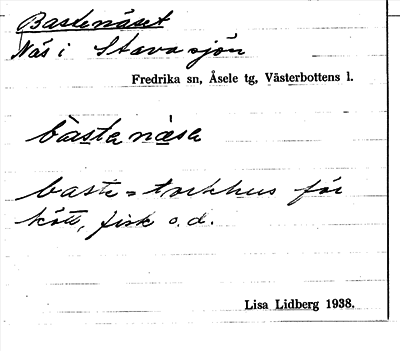 Bastenäset
Näs i Stavasjön
Fredrika sn, Åsele tg, Västerbottens l.
bàsta nä̀sa
baste = torkhus för
kött, fisk o.d.
Lisa Lidberg 1938.